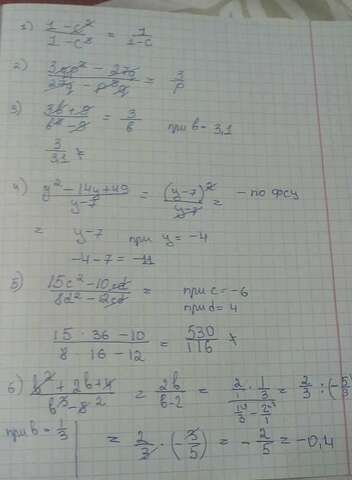 1) (1 - c²)/(1 - c³) = 1/(1-c)
2) (3xp² - 27q)/(27q - p³q) = 3/p
3) (3b + 9)/(b² - 9) = 3/b при b = 3,1
3/3,1
4) (y² - 14y + 49)/(y-7) = (y-7)²/(y-7) = - по фсу
= y-7 при y = -4
-4-7 = -11
5) (15c² - 10cd)/(8d² - 12cd) = при c = -6
при d = 4
(15 · 36 - 10)/(8 · 16 - 12) = 530/116
6) (b² + 2b + 4)/(b³ - 8) = 2b/(b-2) = (2/1 · 1/3)/(1/3 - 2/1) = 2/3 : (-5/3)
при b = 1/3
= 2/3 · (-3/5) = -2/5 = -0,4